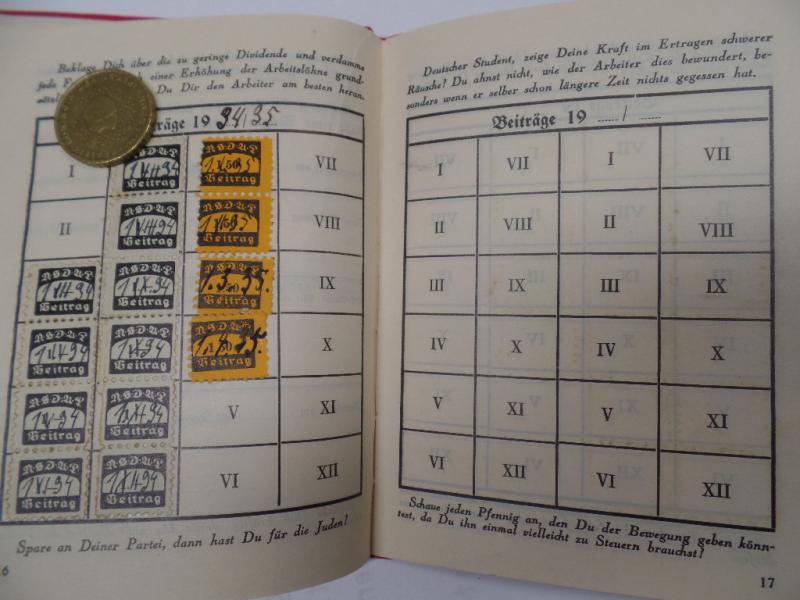 Beklage Dich über die zu geringe Dividende und verdamme
jede einer Erhöhung der Arbeitslöhne grund-
Du Dir den Arbeiter am besten heran.
träge 19 34/35
I
VII
II
VIII
IX
X
V
XI
VI
XII
N.S.D.A.P.
Beitrag
N.S.D.A.P.
Beitrag
N.S.D.A.P.
Beitrag
N.S.D.A.P.
Beitrag
N.S.D.A.P.
Beitrag
N.S.D.A.P.
Beitrag
N.S.D.A.P.
Beitrag
N.S.D.A.P.
Beitrag
N.S.D.A.P.
Beitrag
N.S.D.A.P.
Beitrag
N.S.D.A.P.
Beitrag
N.S.D.A.P.
Beitrag
N.S.D.A.P.
Beitrag
N.S.D.A.P.
Beitrag
Spare an Deiner Partei, dann hast Du für die Juden!
6
Deutscher Student, zeige Deine Kraft im Ertragen schwerer
Räusche! Du ahnst nicht, wie der Arbeiter dies bewundert, be-
sonders wenn er selber schon längere Zeit nichts gegessen hat.
Beiträge 19 ___/___
I VII I VII
II VIII II VIII
III IX III IX
IV X IV X
V XI V XI
VI XII VI XII
Schaue jeden Pfennig an, den Du der Bewegung geben könn-
test, da Du ihn einmal vielleicht zu Steuern brauchst!
17